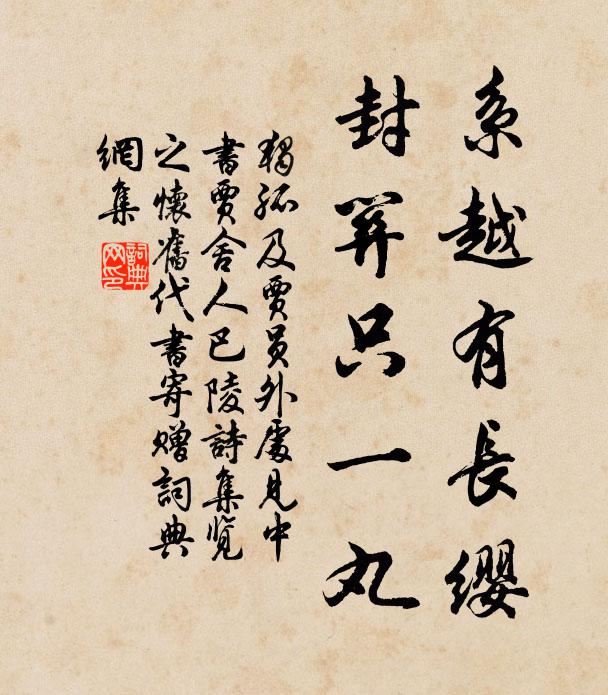 系越有長纓
封關只一丸
獨孤及賈員外處見中
書賈舍人巴陵詩集覽
之懷舊代書寄贈詞典
網集
詞典网印